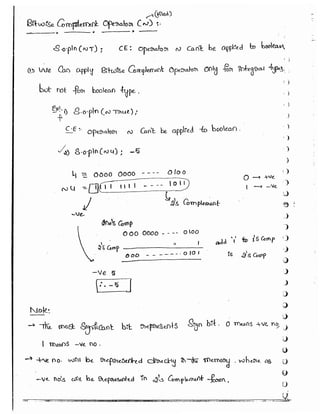 (tilde)
Bitwise Complement Operator (~) :-
S.o.pln (~T) ; CE: operator ~ can't be applied to boolean
(*) We Can apply Bitwise Complement Operator only for Integral types,
but not for boolean type.
Ex:- 1) S.o.pln (~True) ;
C.E :- operator ~ can't be applied to boolean.
2) S.o.pln (~4) ; -5
4 = 0000 0000 ---- 0100
~4 = 1111 1111 ---- 1011
0 → +ve
1 → -ve
2's Complement
-ve
1's Comp
000 0000 ---- 0100
2's Comp 1
000 ------- 0101
add '1' to 1's Comp
is 2's Comp
-ve 5
∴ -5
Note:-
→ The most Significant bit represents Sign bit. 0 means +ve no.
1 means -ve no.
→ +ve no. will be represented directly in the memory. where as
-ve no's will be represented in 2's Complement form.